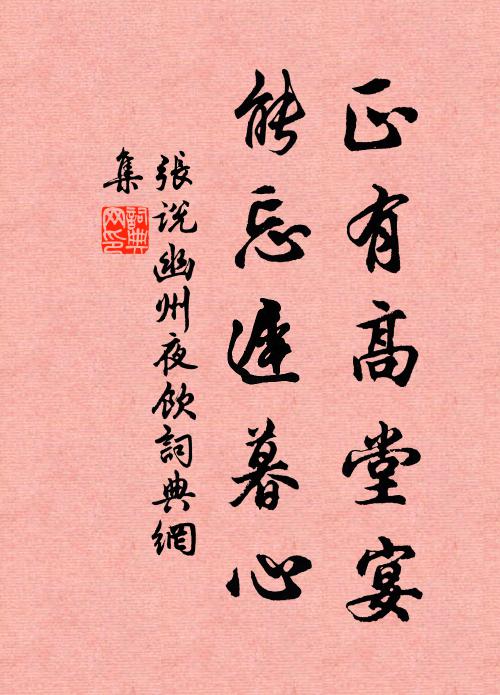 正有高堂宴
能忘遲暮心
張說幽州夜飲詞典網
集
詞典
网印